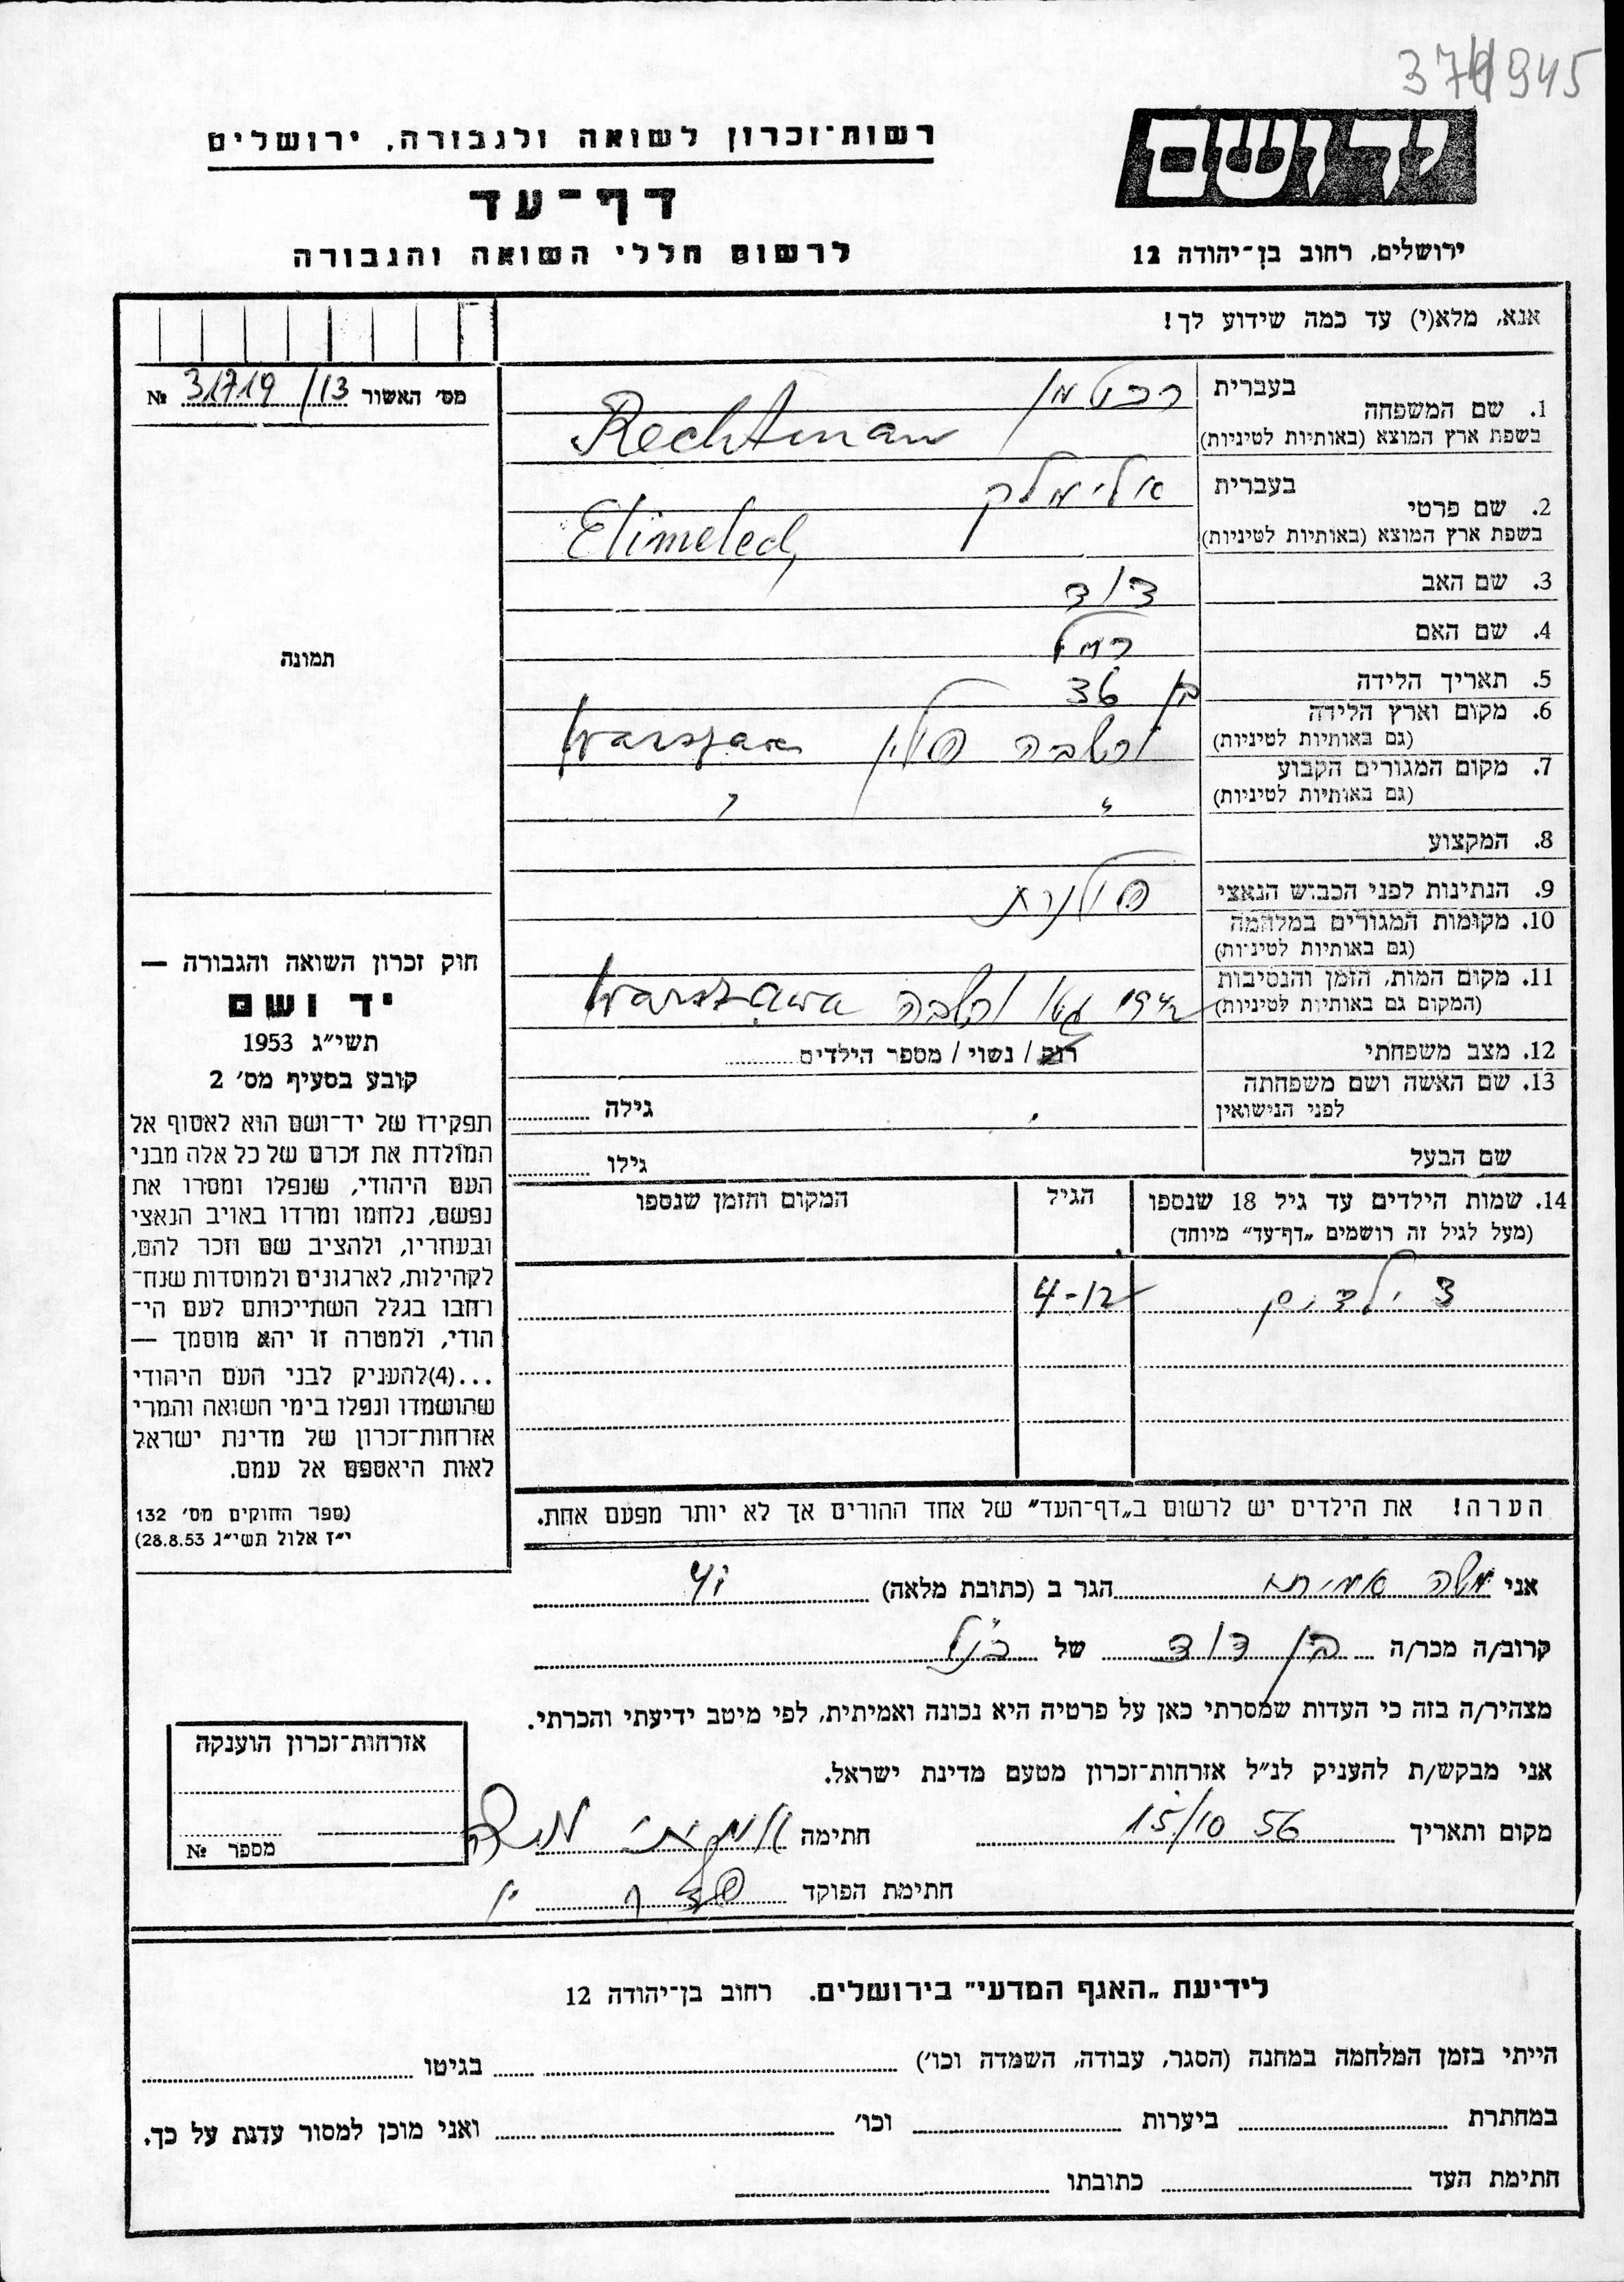 371945
רשות־זכרון לשואה ולגבורה, ירושלים
דף־עד
לרשום חללי השואה והגבורה
ידושם
ירושלים, רחוב בן־יהודה 12
אנא, מלא(י) עד כמה שידוע לך!
מס׳ האשור 31719/13 №
תמונה
1. שם המשפחה בעברית רכטמן
בשפת ארץ המוצא (באותיות לטיניות) Rechtman
2. שם פרטי בעברית אלימלך
בשפת ארץ המוצא (באותיות לטיניות) Elimelech
3. שם האב דוד
4. שם האם רחל
5. תאריך הלידה בן 36
6. מקום וארץ הלידה (גם באותיות לטיניות) ורשבה פולין Warszawa
7. מקום המגורים הקבוע (גם באותיות לטיניות) " "
8. המקצוע
9. הנתינות לפני הכבוש הנאצי פולנית
10. מקומות המגורים במלחמה (גם באותיות לטיניות)
11. מקום המות, הזמן והנסיבות (המקום גם באותיות לטיניות) 1942 גטו ורשבה Warszawa
12. מצב משפחתי רוק / נשוי / מספר הילדים
13. שם האשה ושם משפחתה לפני הנישואין גילה
שם הבעל גילו
14. שמות הילדים עד גיל 18 שנספו הגיל המקום והזמן שנספו
(מעל לגיל זה רושמים „דף־עד״ מיוחד)
3 ילדים 4-12
הערה! את הילדים יש לרשום ב„דף־העד״ של אחד ההורים אך לא יותר מפעם אחת.
חוק זכרון השואה והגבורה —
יד ושם
תשי״ג 1953
קובע בסעיף מס׳ 2
תפקידו של יד־ושם הוא לאסוף אל
המולדת את זכרם של כל אלה מבני
העם היהודי, שנפלו ומסרו את
נפשם, נלחמו ומרדו באויב הנאצי
ובעוזריו, ולהציב שם וזכר להם,
לקהילות, לארגונים ולמוסדות שנח־
רחבו בגלל השתייכותם לעם הי־
הודי, ולמטרה זו יהא מוסמך —
...(4)להעניק לבני העם היהודי
שהושמדו ונפלו בימי השואה והמרי
אזרחות־זכרון של מדינת ישראל
לאות היאספם אל עמם.
(ספר החוקים מס׳ 132
י״ז אלול תשי״ג 28.8.53)
אני משה אמיתי הגר ב (כתובת מלאה)
קרוב/ה מכר/ה בן דוד של הנ״ל
מצהיר/ה בזה כי העדות שמסרתי כאן על פרטיה היא נכונה ואמיתית, לפי מיטב ידיעתי והכרתי.
אני מבקש/ת להעניק לנ״ל אזרחות־זכרון מטעם מדינת ישראל.
מקום ותאריך 15/10 56 חתימה אמיתי משה
חתימת הפוקד
אזרחות־זכרון הוענקה
מספר №
לידיעת „האגף המדעי״ בירושלים. רחוב בן־יהודה 12
הייתי בזמן המלחמה במחנה (הסגר, עבודה, השמדה וכו׳) בגיטו
במחתרת ביערות וכו׳ ואני מוכן למסור עדות על כך.
חתימת העד כתובתו